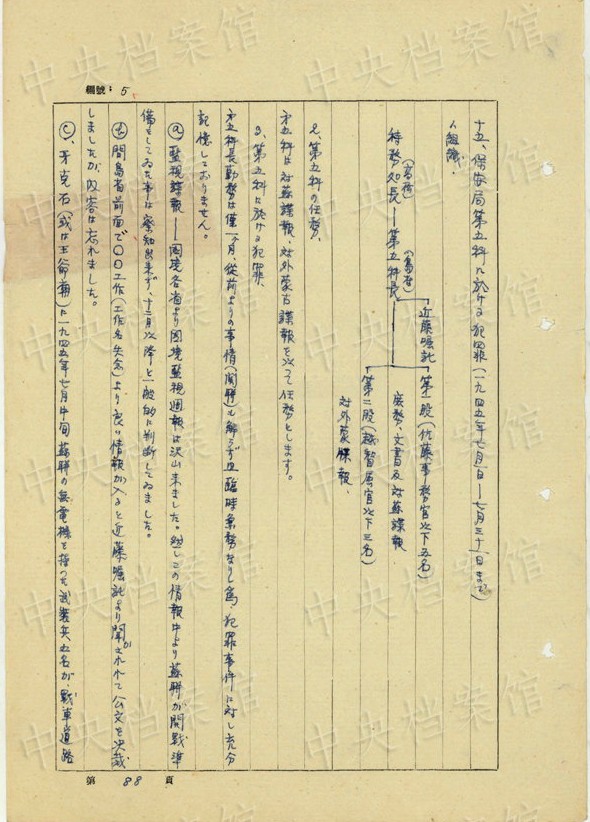 欄號：5
十五、保安局第五科ニ於ける犯罪（一九四五年七月一日—七月三十一日まで）
1、組織．
近藤嘱託
第一股（佐藤事務官以下五名）
庶務、文書及対蘇諜報
（島貫）
特務処長——第五科長
第二股（越智属官以下三名）
対外蒙諜報、
2、第五科の任務、
第五科は対蘇諜報、対外蒙古諜報を以って任務とします。
3、第五科に於ける犯罪、
第五科長勤務は僅一ヶ月、従前よりの事情（関聯）も解らず且臨時業務なりし為、犯罪事件に対し充分
記憶しておりません。
ⓐ 監視諜報——国境各省より国境監視週報は沢山来ました。然しこの情報中より蘇聯が開戦準
備をしてゐた事は察知出来ず、十二月以降と一般的に判断してゐました。
ⓑ 間島省前面で〇〇工作（工作名失念）より良い情報が入ると近藤嘱託より聞かされて公文を決裁
しましたが、内容は忘れました。
ⓒ、牙克石（或は王爺廟）に一九四五年七月中旬蘇聯の無電機を持った武装兵五名が、戦車道路
第 88 頁
中央档案馆